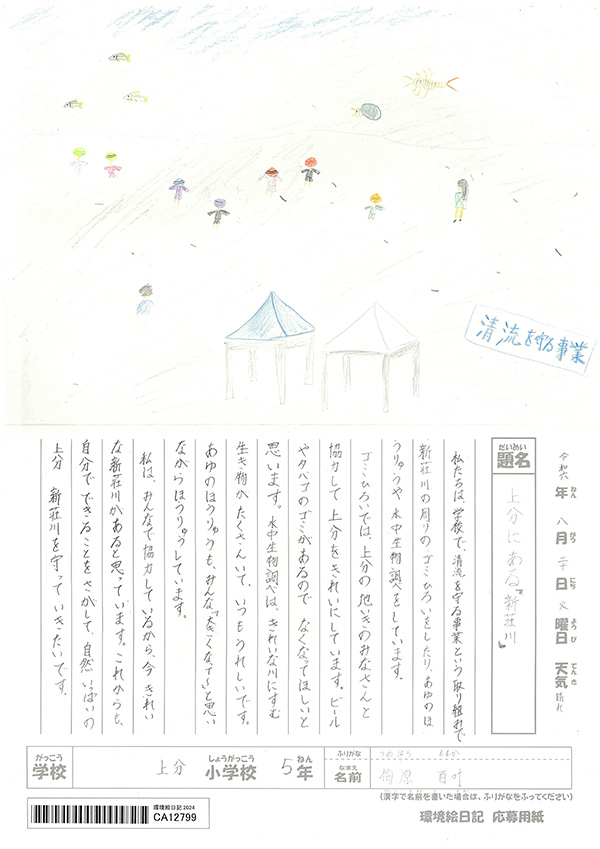 清流を守る事業
令和六年八月二十日火曜日 天気 晴れ
ねん がつ にち ようび てんき
だいめい
題名
上分にある「新荘川」
私たちは、学校で、清流を守る事業という取り組みで
新荘川の周りのゴミひろいをしたり、あゆのほ
うりゅうや水中生物調べをしています。
ゴミひろいでは、上分の地いきのみなさんと
協力して上分をきれいにしています。ビール
やタバコのゴミがあるので、なくなってほしいと
思います。水中生物調べは、きれいな川にすむ
生き物がたくさんいて、いつもうれしいです。
あゆのほうりゅうも、みんな「大きくなって〜」と思い
ながらほうりゅうしています。
私は、みんなで協力しているから、今きれい
な新荘川があると思っています。これからも、
自分でできることをさがして、自然いっぱいの
上分 新荘川を守っていきたいです。
がっこう
学校
上分
しょうがっこう
小学校
5
ねん
年
ふりがな
うめはら ももか
なまえ
名前
梅原 百叶
(漢字で名前を書いた場合は、ふりがなをふってください)
環境絵日記 2024
CA12799
環境絵日記 応募用紙